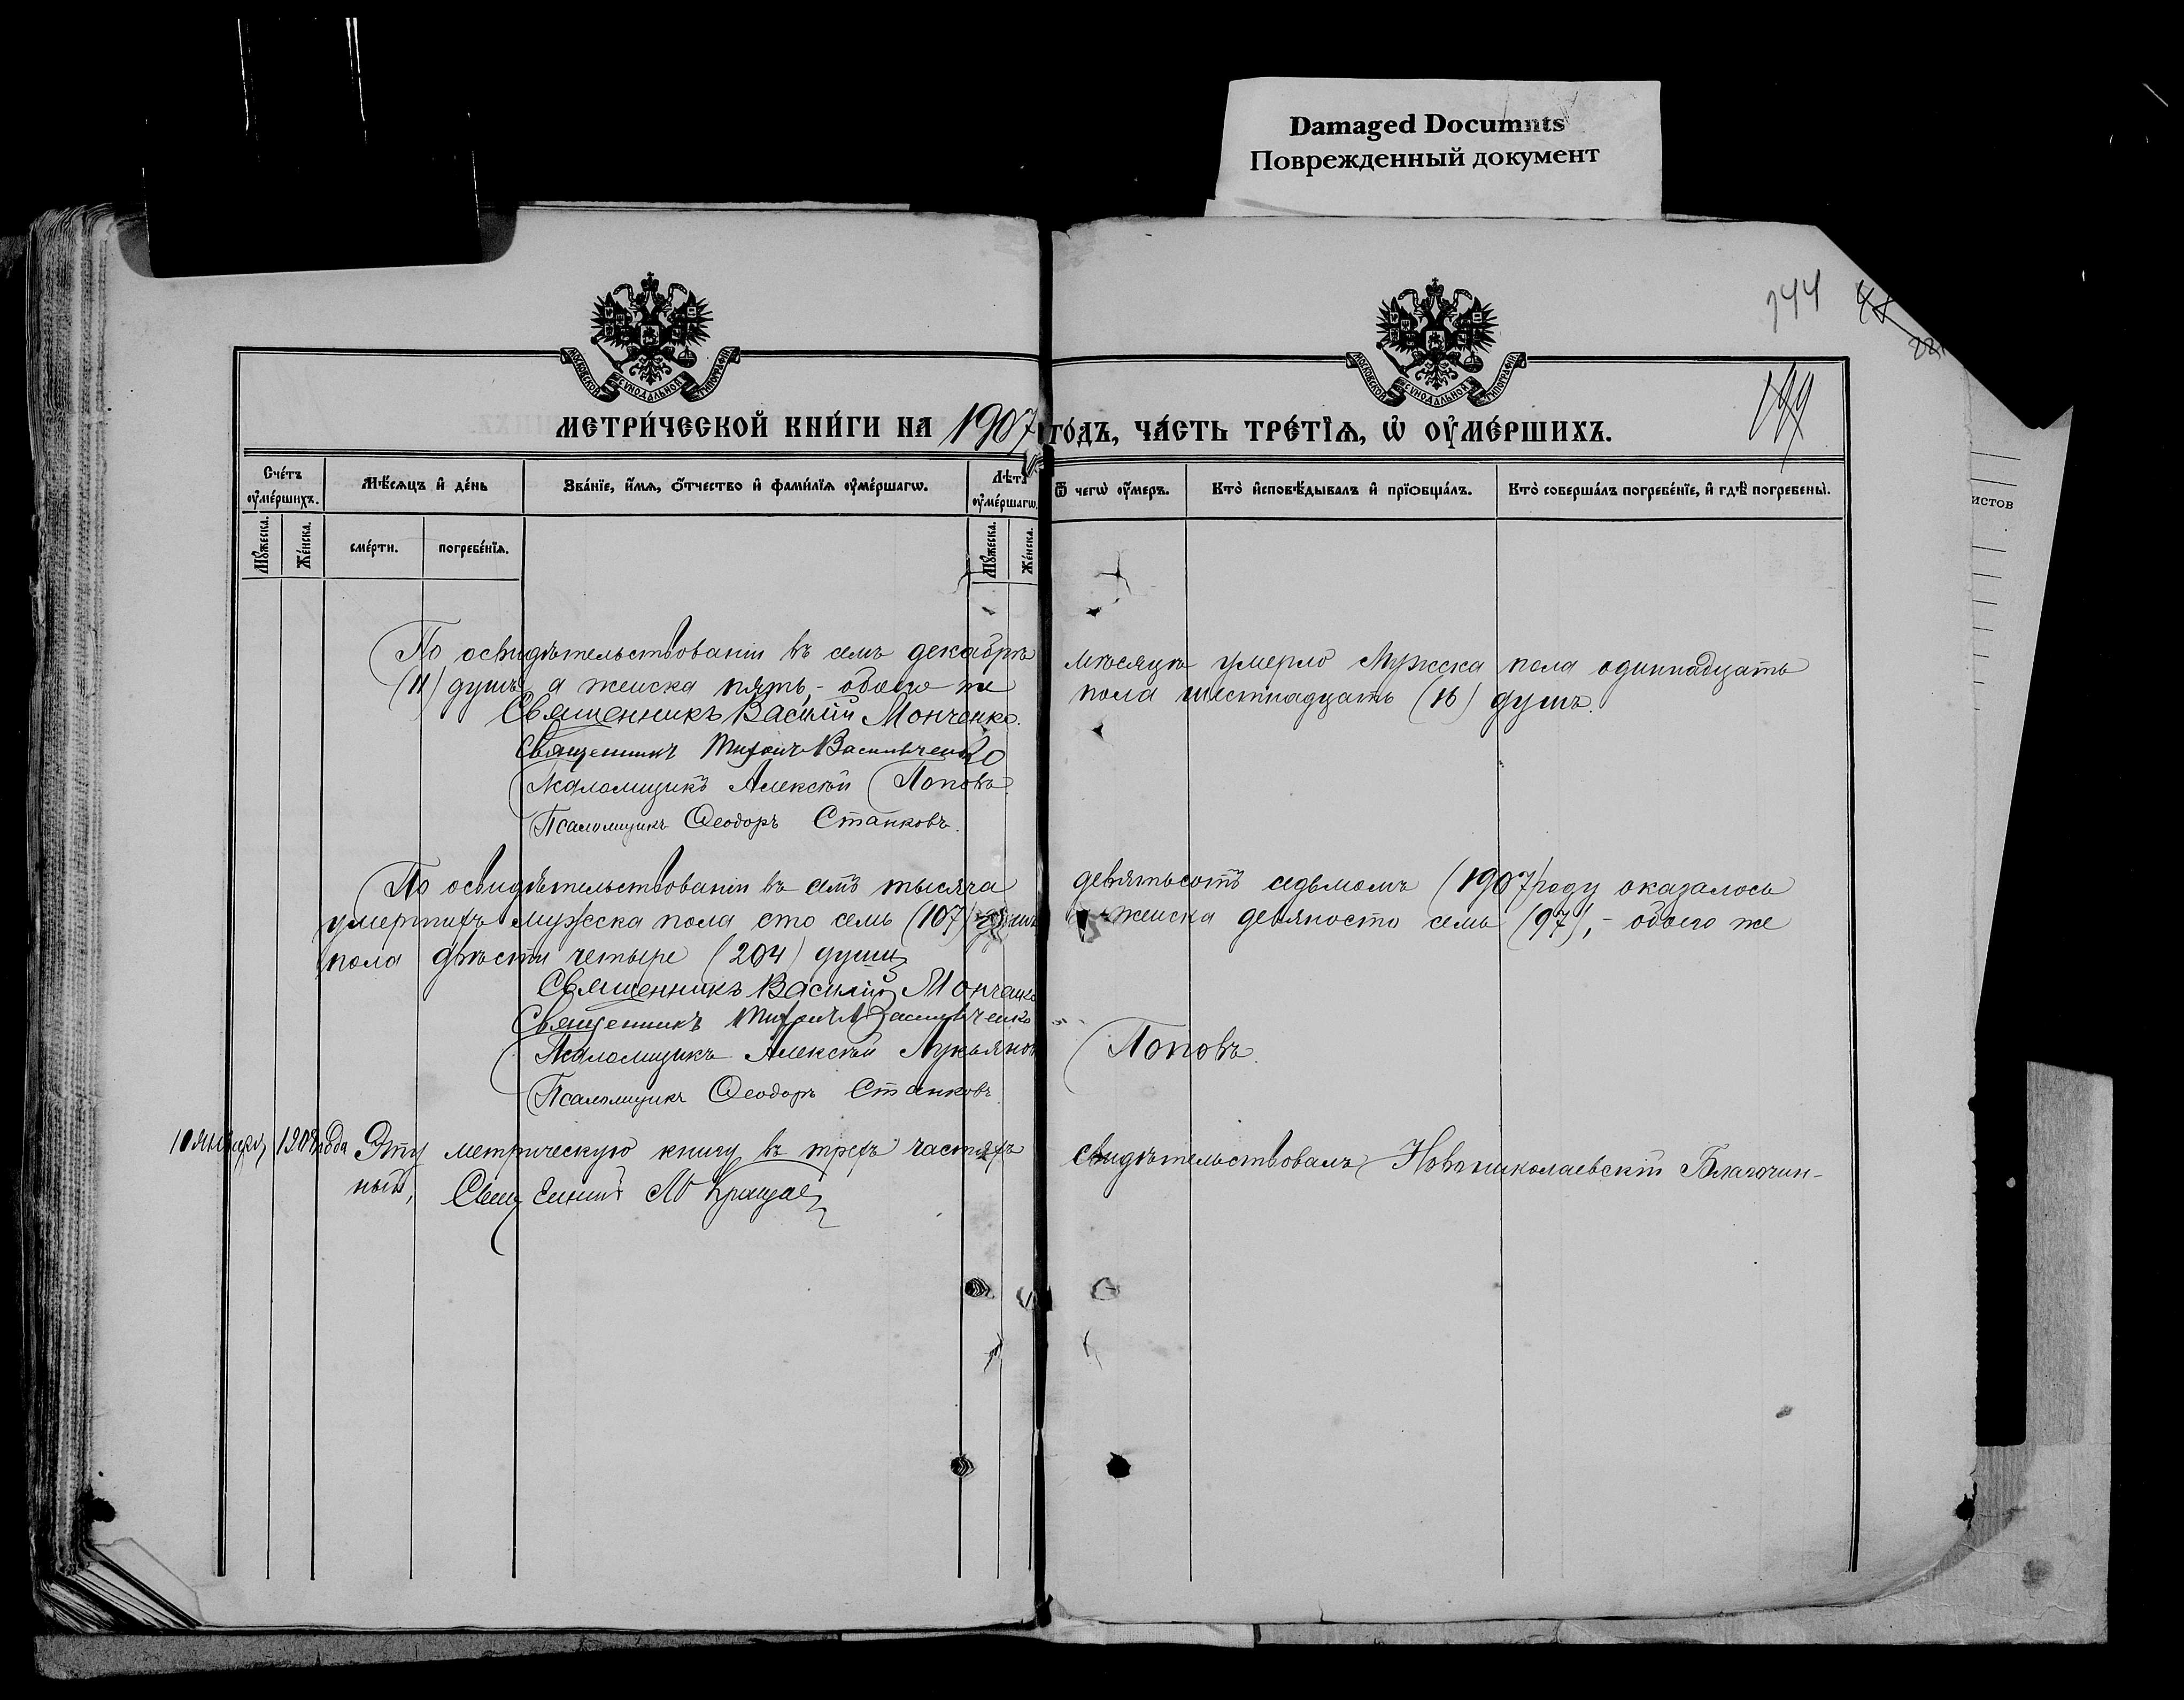 Damaged Documnts
Поврежденный документ
144
МОСКОВСКОЙ СѴНОДАЛЬНОЙ ТИПОГРАФІИ
МОСКОВСКОЙ СѴНОДАЛЬНОЙ ТИПОГРАФІИ
МЕТРИ́ЧЕСКОЙ КНИ́ГИ НА 1907 ГО́ДЪ, ЧА́СТЬ ТРЕ́ТІѦ, Ѡ҆ ОУ҆МЕ́РШИХЪ.
Сче́тъ оу҆ме́ршихъ.
Мꙋ́жеска.
Же́нска.
Мѣ́сѧцъ и҆ де́нь
сме́рти.
погребе́нїѧ.
Зва́нїе, и҆́мѧ, ѻ҆́тчество и҆ фами́лїѧ оу҆ме́ршагѡ.
Лѣта̀ оу҆ме́ршагѡ.
Мꙋ́жеска.
Же́нска.
Ѿ чегѡ̀ оу҆́меръ.
Кто̀ и҆сповѣ́дывалъ и҆ прїѡбща́лъ.
Кто̀ соверша́лъ погребе́нїе, и҆ гдѣ̀ погребены̀.
истов
По освидѣтельствованіи въ семъ декабрѣ мѣсяцѣ умерло мужска пола одиннадцать
(11) душъ, а женска пять, - обоего же пола шестнадцать (16) душъ.
Священникъ Василій Монченко.
Священникъ Тихонъ Васильченко
Псаломщикъ Алексѣй Поповъ.
Псаломщикъ Ѳеодоръ Станковъ.
По освидѣтельствованіи въ семъ тысяча девятьсотъ седьмомъ (1907) году оказалось
умершихъ мужска пола сто семь (107) женска девяносто семь (97), - обоего же
пола двѣсти четыре (204) души
Священникъ Василій Монченко
Священникъ Васильченко
Псаломщикъ Алексѣй Лукьянов Поповъ.
Псаломщикъ Ѳеодоръ Станковъ.
10 января 1908 года Эту метрическую книгу въ трехъ частяхъ свидѣтельствовалъ Новониколаевскій Благочин-
ный, Священникъ